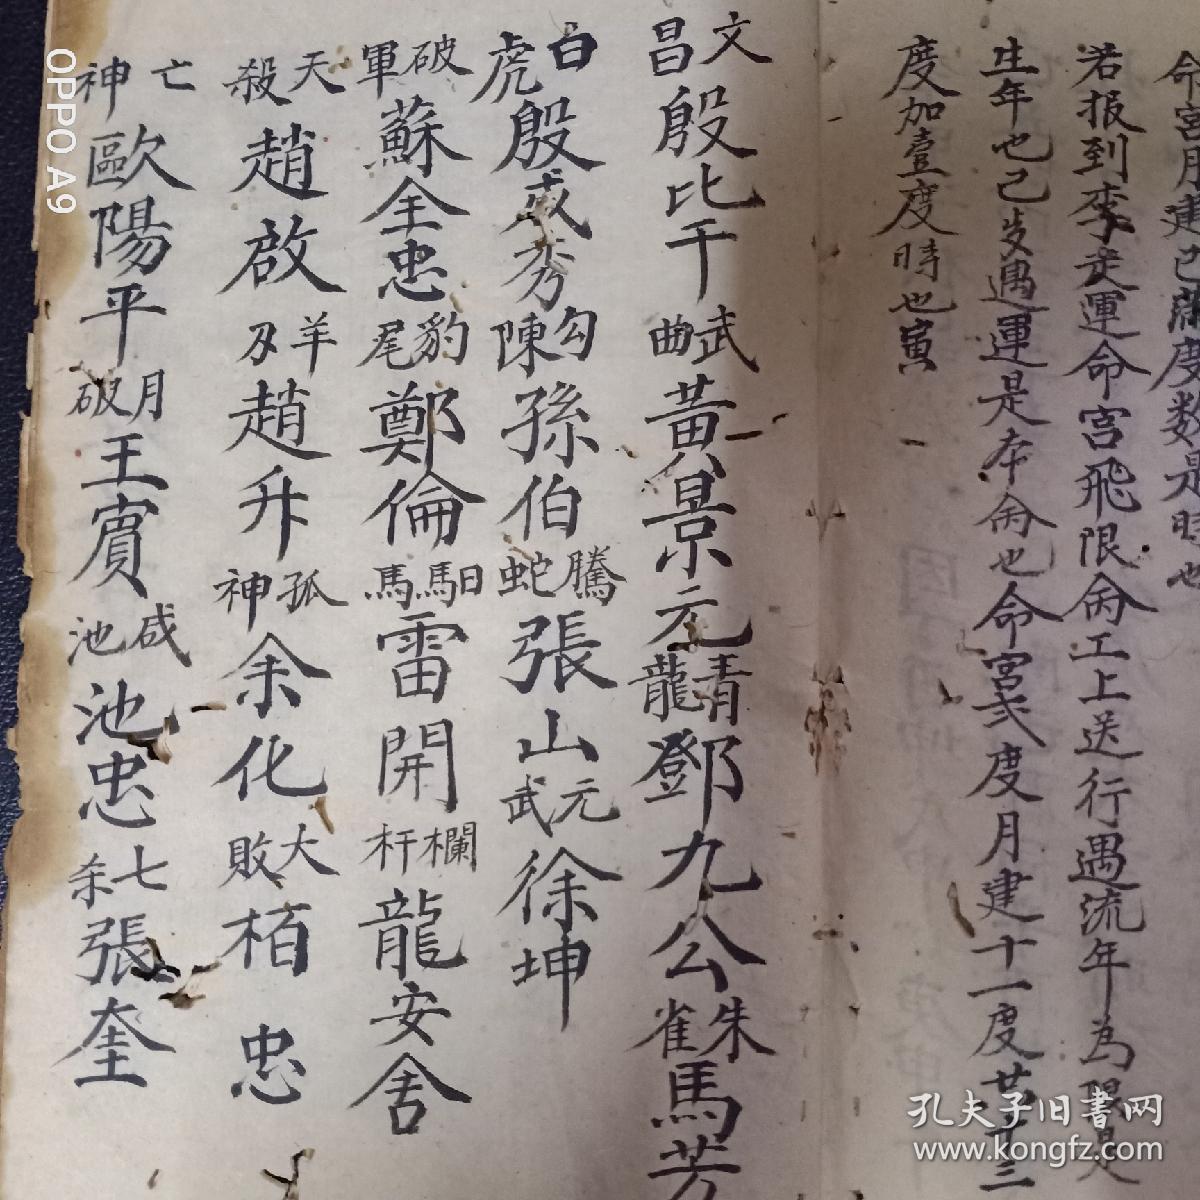 命宮月建巳
度数是時也
若报到李
運命宮飛限命工上送行遇流年為限
生年也己岁遇運是本命也命宮弍度月建十一度
度加壹度時也寅
文昌殷比干武曲黃景元青龍鄧九公朱雀馬芳
白虎殷成秀勾陳孫伯騰蛇張山元武徐坤
破軍蘇全忠豹尾鄭倫馹馬雷開欄杆龍安舍
天殺趙啟羊刃趙升孤神余化大敗栢忠
亡神歐陽平月破王賓咸池池忠七杀張奎
OPPO A9
孔夫子旧書网
www.kongfz.com